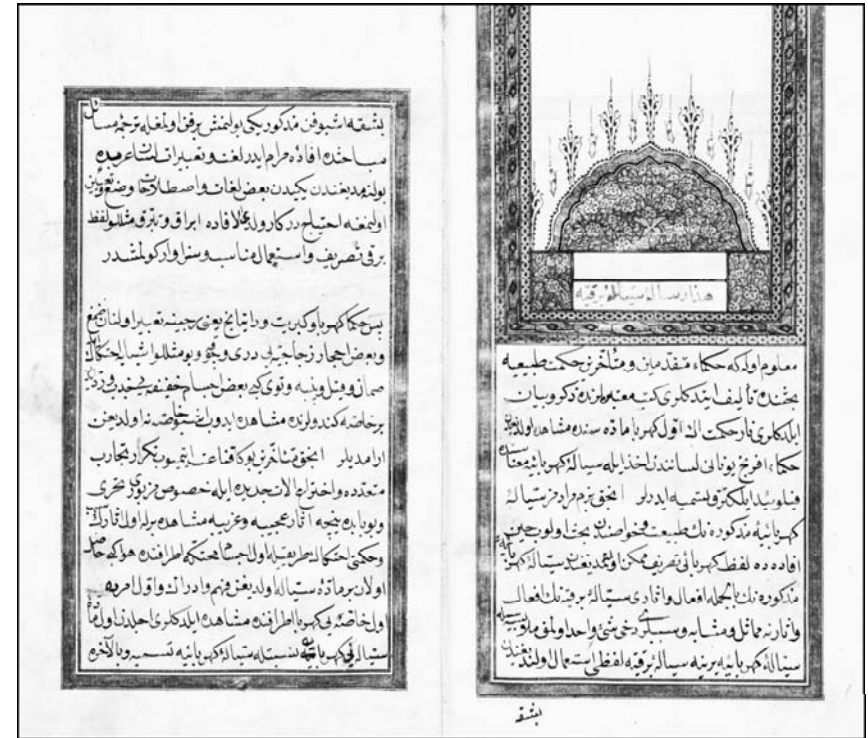 هذا رسالهٔ سیالهٔ برقیه
معلوم اوله که حکماء متقدمین و متأخرین حکمت طبیعیه
بحثنده تألیف ایتدکلری کتب معتبره‌لرنده ذکر و بیان
ایلدکلری نار حکمت اڭ اول کهربا ماده سنده مشاهده اولدیغندن
حکماء افرنج یونانی لسانندن اخذ ایله سیالهٔ کهربائیه معناسنده
ایلکتریق تسمیه ایدرلر انجق بزم مرادمز سیالهٔ
کهربائیه مذکوره نك طبیعت و خواصندن بحث اولنورکن
افاده ده لفظ کهربائی تصریف ممکن اولمدیغندن سیالهٔ کهربائیه
مذکوره نك بالجمله افعال و آثاری سیالهٔ برقیه نك افعال
و آثارینه مماثل و مشابه و سببلری دخی شئ واحد اولمق ملابسه سیله
سیالهٔ کهربائیه یرینه سیالهٔ برقیه لفظی استعمال اولندیغندن
بشقه
بشقه اشبو فن مذکور یکی بولنمش بر فن اولمغله ترجمهٔ مسائل
مباحثنده افادهٔ مرام ایدر لغت و تعبیرات لسان عربیده
بولنمدیغندن یکیدن بعض لغات و اصطلاحات وضع و تعیین
اولنمغه احتیاج درکار ولدی الافاده ابراق و تبرق مثللو لفظ
برقی تصریف و استعمال مناسب و سزاوار کورلمشدر
پس حکما کهربا و کبریت و راتیانج یعنی رچینه تعبیر اولنان صمغ
و بعض احجار زجاجیه یی و بو مثللو اشیا لدی الحکاك
صمان و قیل و پنبه و توی کبی بعض اجسام خفیفه یی جذب
بر خاصه کندولرنده مشاهده ایدوب اشبو خاصه نه اولدیغن
ارامدیلر انجق متأخرین بوکا قناعت ایتمیوب تکرار تجارب
متعدده و اختراع آلات جدیده ایله خصوص مزبوری تحری
و بو بابده نیچه آثار عجیبه و غریبه مشاهده برله اول آثارك
وحکمی احتکاك طریقیله اول اجسام محتکه اطرافنده هوا کبی حاصل
اولان بر مادهٔ سیاله اولدیغن فهم و ادراك و اول امرده
اول خاصه یی کهربا اطرافنده مشاهده ایلدکلری اجلدن اول مادهٔ
سیاله یی کهربایه نسبتله سیالهٔ کهربائیه تسمیه و بالاخره